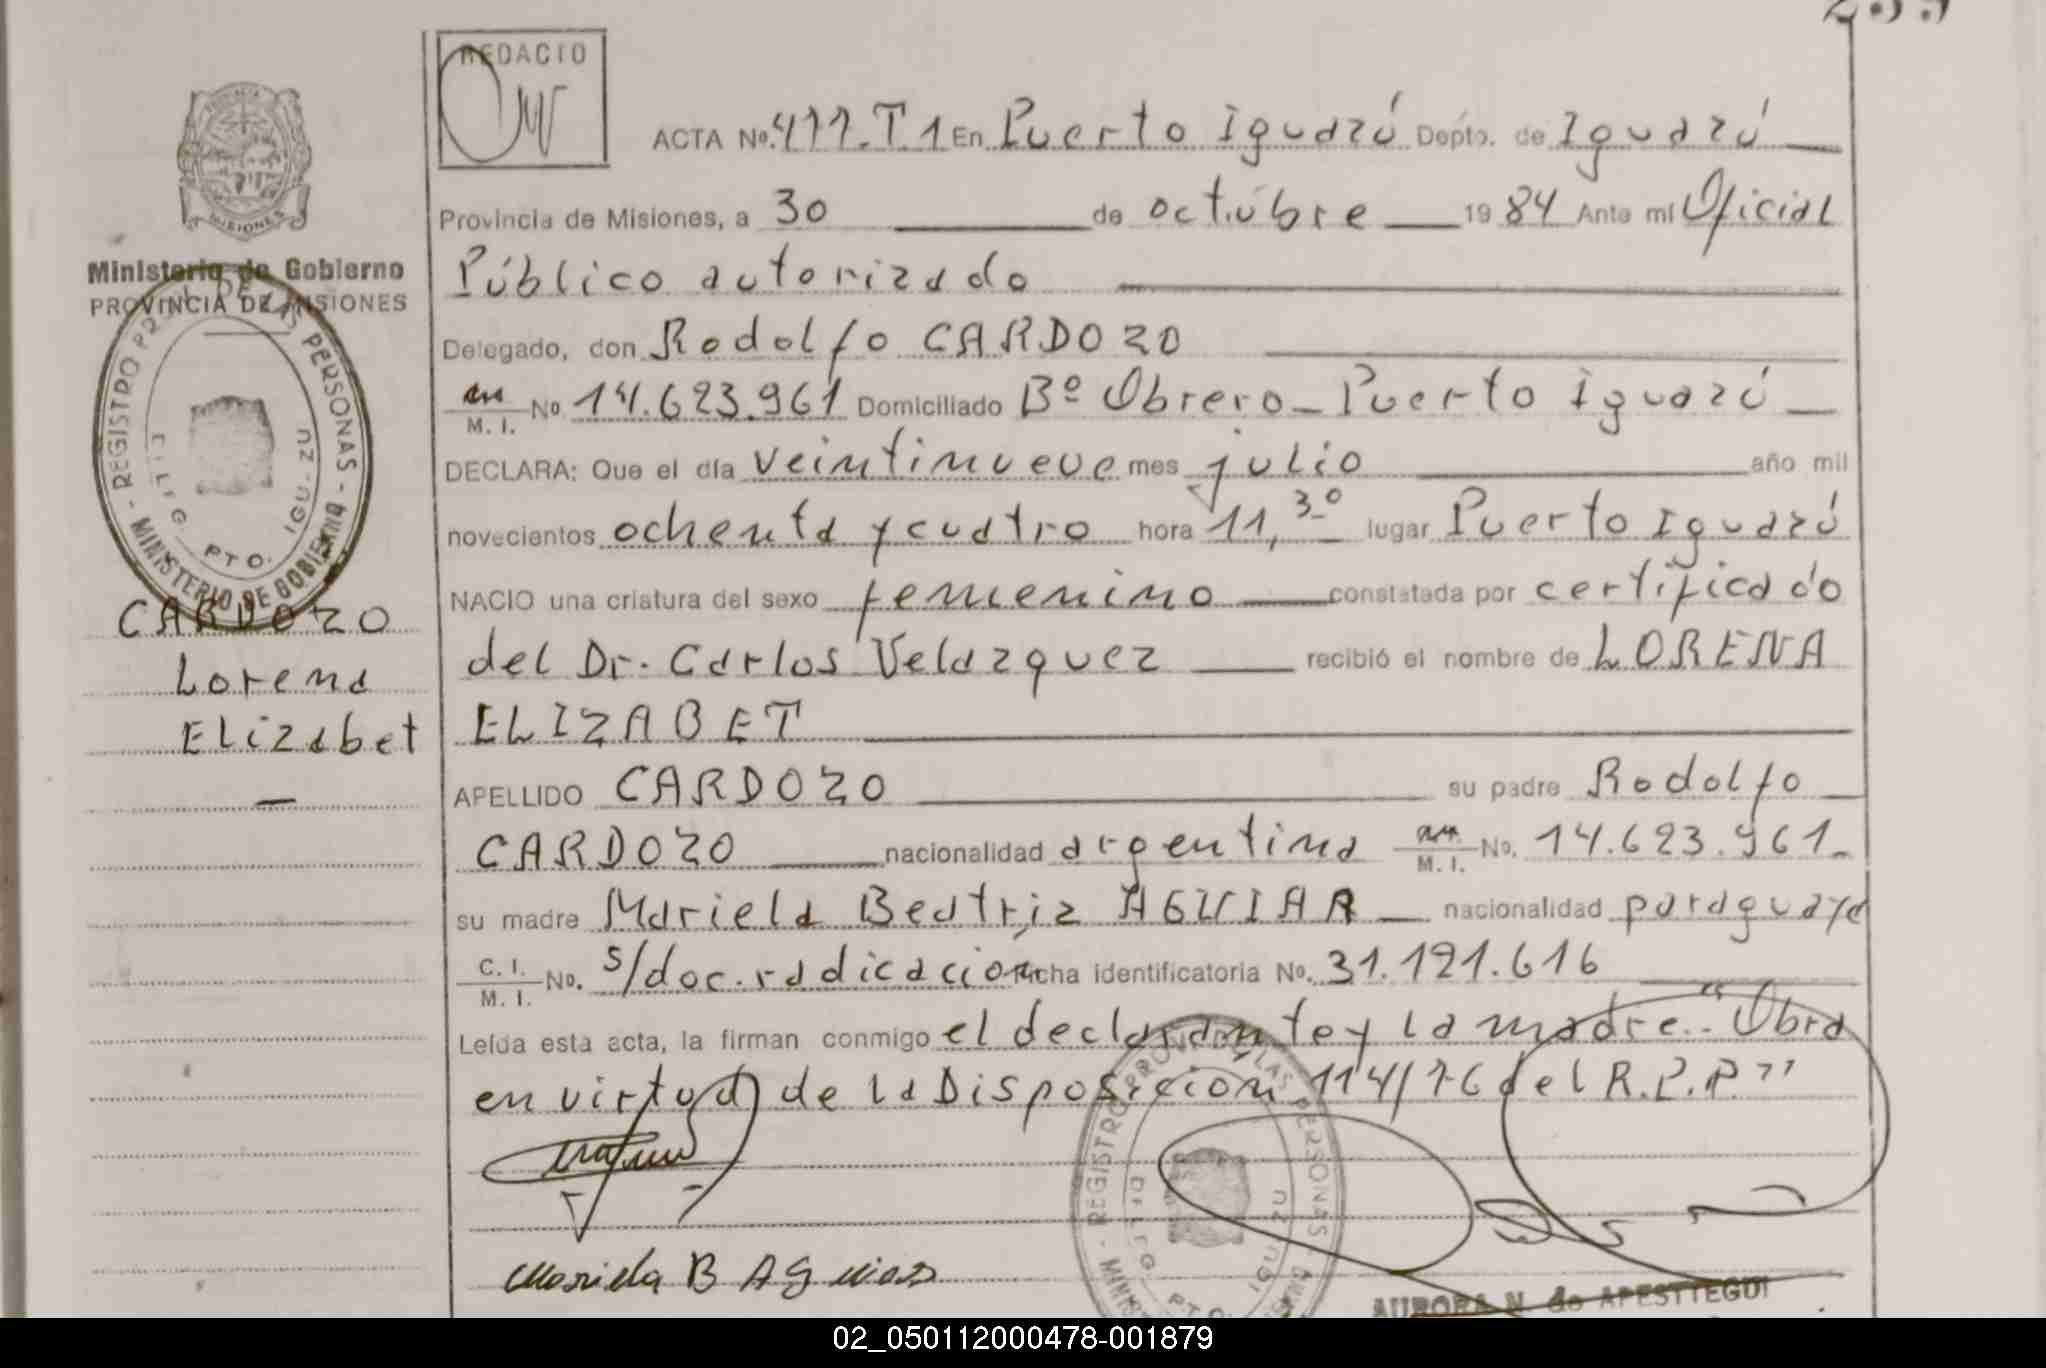 REDACIO
ACTA No. 477.T.1 En Puerto Iguazú Depto. de Iguazú
Provincia de Misiones, a 30 de octubre 19 84 Ante mí Oficial
Público autorizado
Delegado, don Rodolfo CARDOZO
M. I. No 14.623.961 Domiciliado Bº Obrero - Puerto Iguazú
DECLARA: Que el día veintinueve mes julio año mil
novecientos ochenta y cuatro hora 11,30 lugar Puerto Iguazú
NACIO una criatura del sexo femenino constatada por certificado
del Dr. Carlos Velazquez recibió el nombre de LORENA
ELIZABET
APELLIDO CARDOZO su padre Rodolfo
CARDOZO nacionalidad argentina M. I. No. 14.623.961
su madre Mariela Beatriz AGUIAR nacionalidad paraguaya
C. I. M. I. No. s/doc. radicacion Ficha identificatoria No. 31.191.616
Leída esta acta, la firman conmigo el declarante y la madre. "Obra
en virtud de la Disposicion 114/76 del R.P.P."
Mariela B Aguiar
AURORA N. de APESTTEGUI
PROVINCIA MISIONES
Ministerio de Gobierno
PROVINCIA DE MISIONES
- REGISTRO PROV. DE LAS PERSONAS - MINISTERIO DE GOBIERNO
PTO. IGU. ZU
CARDOZO
Lorena
Elizabet
REGISTRO PROV. DE LAS PERSONAS
PTO.
02_050112000478-001879